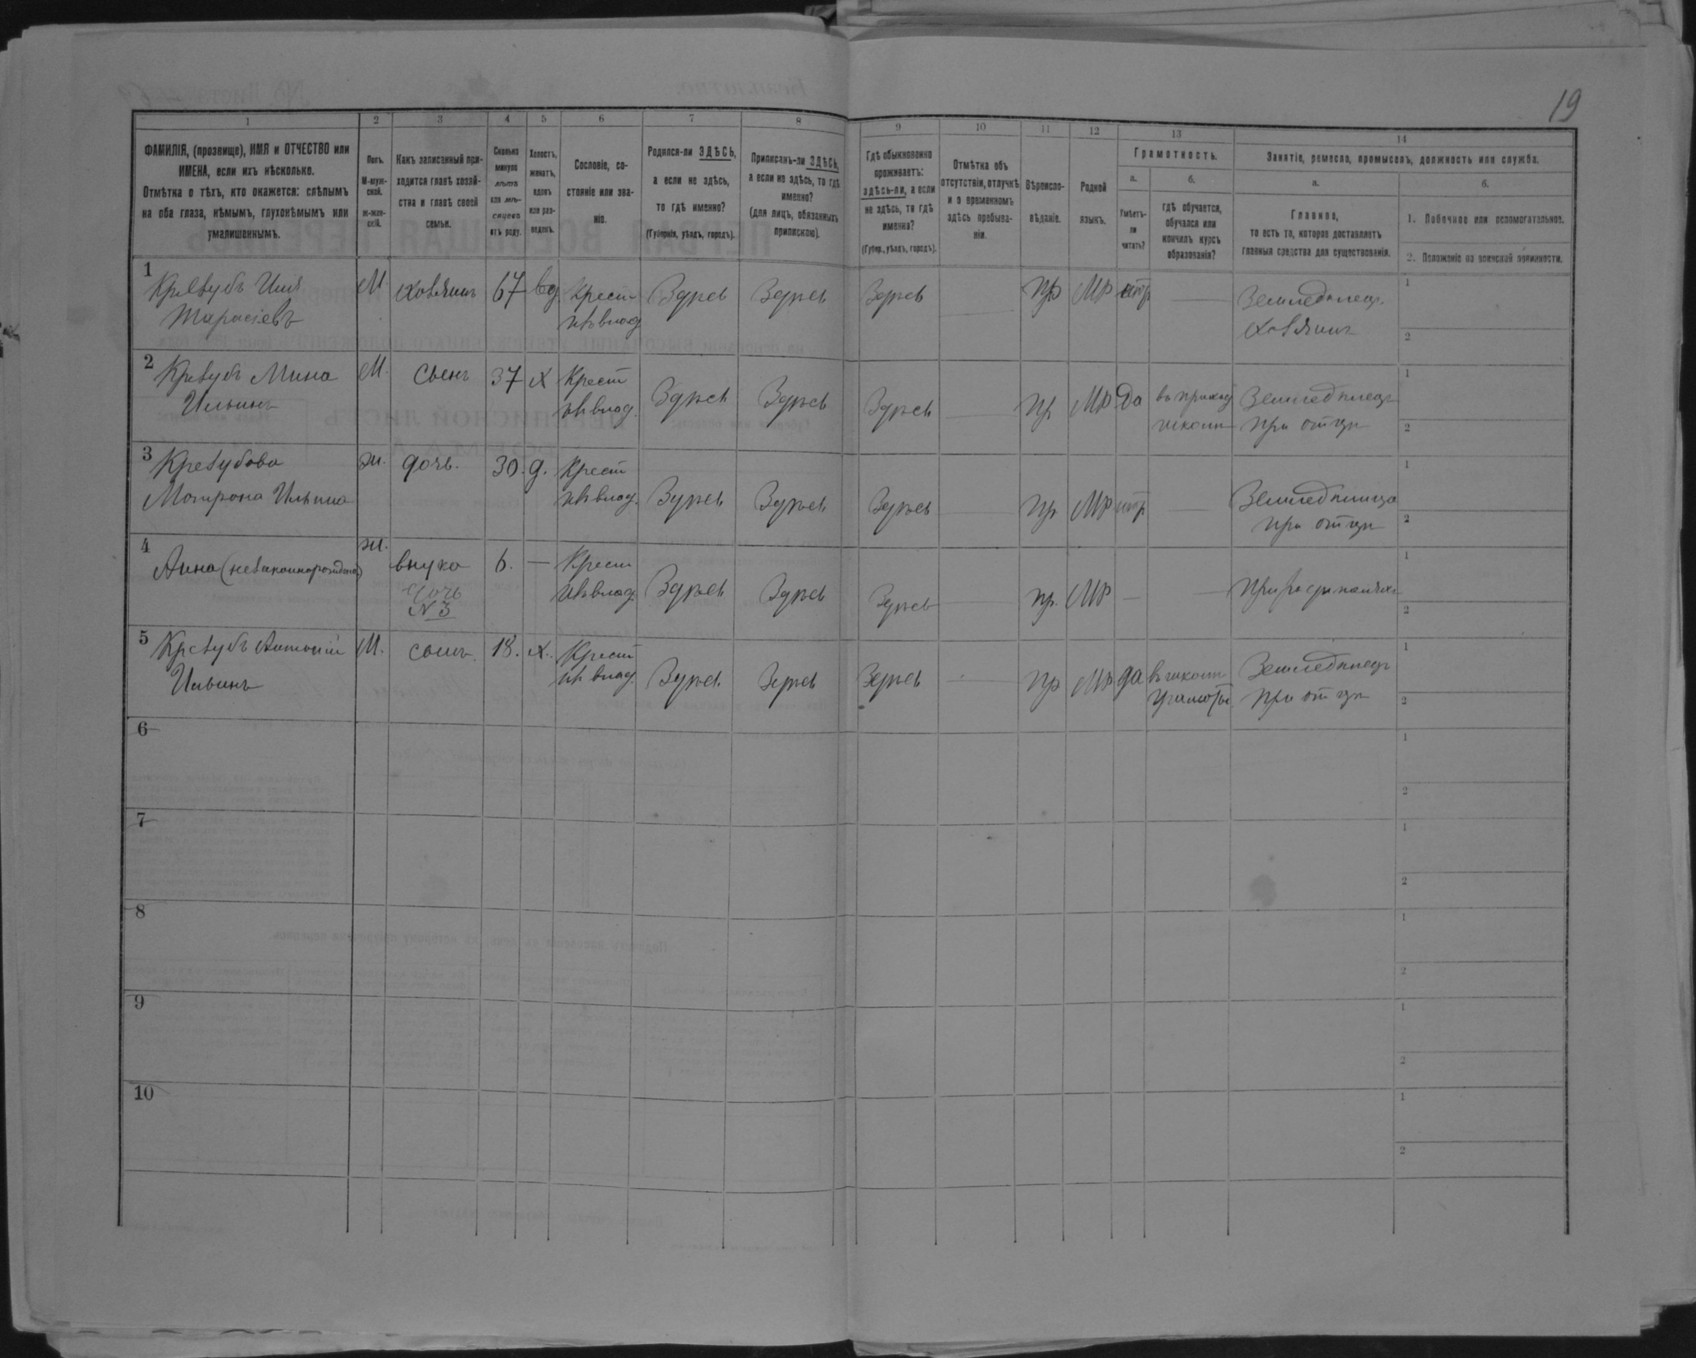 19
1 2 3 4 5 6 7 8 9 10 11 12 13 14
ФАМИЛІЯ, (прозвище), ИМЯ и ОТЧЕСТВО или
ИМЕНА, если ихъ нѣсколько.
Отмѣтка о тѣхъ, кто окажется: слѣпымъ
на оба глаза, нѣмымъ, глухонѣмымъ или
умалишеннымъ.
Полъ.
М-муж-
ской.
ж-жен-
скій.
Какъ записанный при-
ходится главѣ хозяй-
ства и главѣ своей
семьи.
Сколько
минуло
лѣтъ
или мѣ-
сяцевъ
отъ роду.
Холостъ,
женатъ,
вдовъ
или раз-
веденъ.
Сословіе, со-
стояніе или зва-
ніе.
Родился-ли ЗДѢСЬ,
а если не здѣсь,
то гдѣ именно?
(Губернія, уѣздъ, городъ).
Приписанъ-ли ЗДѢСЬ,
а если не здѣсь, то гдѣ
именно?
(для лицъ, обязанныхъ
припискою).
Гдѣ обыкновенно
проживаетъ:
здѣсь-ли, а если
не здѣсь, то гдѣ
именно?
(Губерн., уѣздъ, городъ).
Отмѣтка объ
отсутствіи, отлучкѣ
и о временномъ
здѣсь пребыва-
ніи.
Вѣроиспо-
вѣданіе.
Родной
языкъ.
Грамотность.
а.
Умѣетъ-
ли
читать?
б.
гдѣ обучается,
обучался или
кончилъ курсъ
образованія?
Занятіе, ремесло, промыселъ, должность или служба.
а.
Главное,
то есть то, которое доставляетъ
главныя средства для существованія.
б.
1. Побочное или вспомогательное.
2. Положеніе по воинской повинности.
1 Кревубъ Илія М хозяинъ 67 вд Крест- Здѣсь Здѣсь Здѣсь — Пр МР нѣтъ — Земледѣлецъ 1
Тарасіевъ изъ влад. хозяинъ 2
2 Кревубъ Мина М. сынъ 37 х Крест Здѣсь Здѣсь Здѣсь — Пр МР да въ приход Земледѣлецъ 1
Ильинъ изъ влад. школѣ при отцѣ 2
3 Кревубова ж. дочь. 30. д. Крест Здѣсь Здѣсь Здѣсь — Пр МР нѣтъ — Земледѣлица 1
Матрона Ильина изъ влад. при отцѣ 2
4 Анна (незаконнорожден) ж. внука 6. — Крест Здѣсь Здѣсь Здѣсь — пр. МР — — При родственникѣ 1
дочь изъ влад. 2
N 3
5 Кревубъ Антоній М. сынъ. 18. х. Крест Здѣсь Здѣсь Здѣсь — Пр МР да въ школѣ Земледѣлецъ 1
Ильинъ изъ влад. грамоты при отцѣ 2
6 1
2
7 1
2
8 1
2
9 1
2
10 1
2